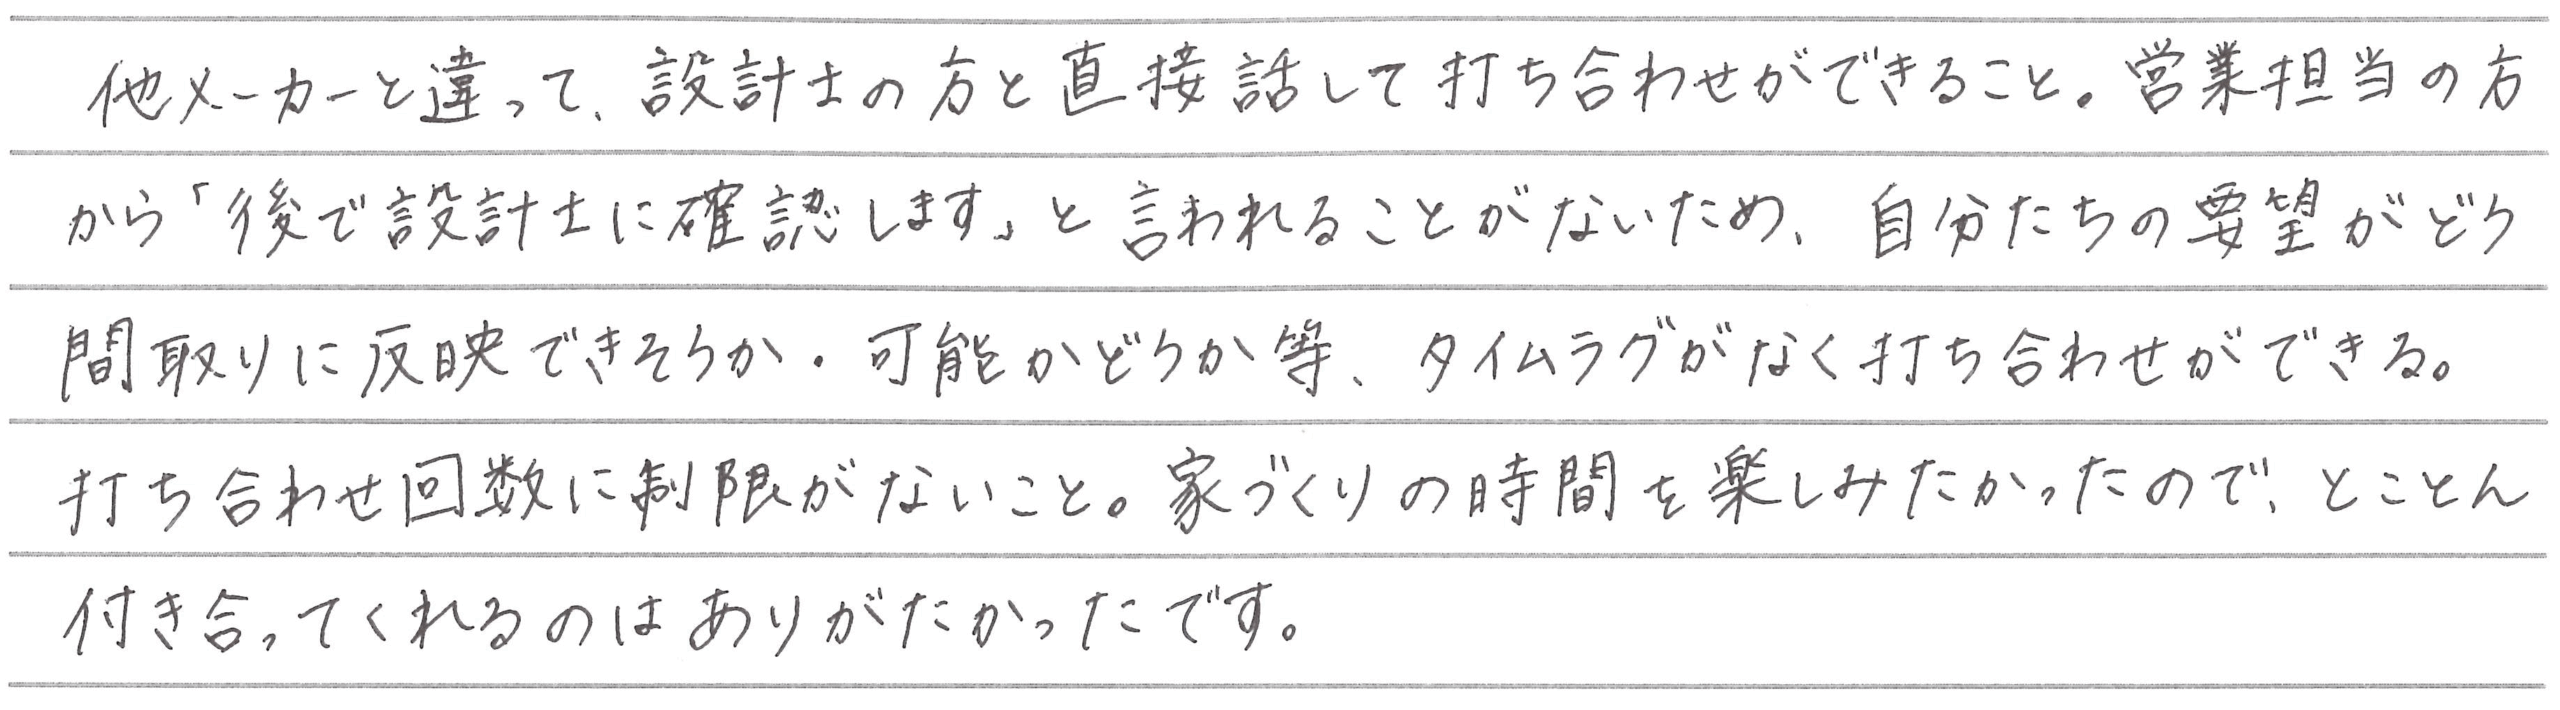 他メーカーと違って、設計士の方と直接話して打ち合わせができること。営業担当の方
から「後で設計士に確認します」と言われることがないため、自分たちの要望がどう
間取りに反映できそうか・可能かどうか等、タイムラグがなく打ち合わせができる。
打ち合わせ回数に制限がないこと。家づくりの時間を楽しみたかったので、とことん
付き合ってくれるのはありがたかったです。